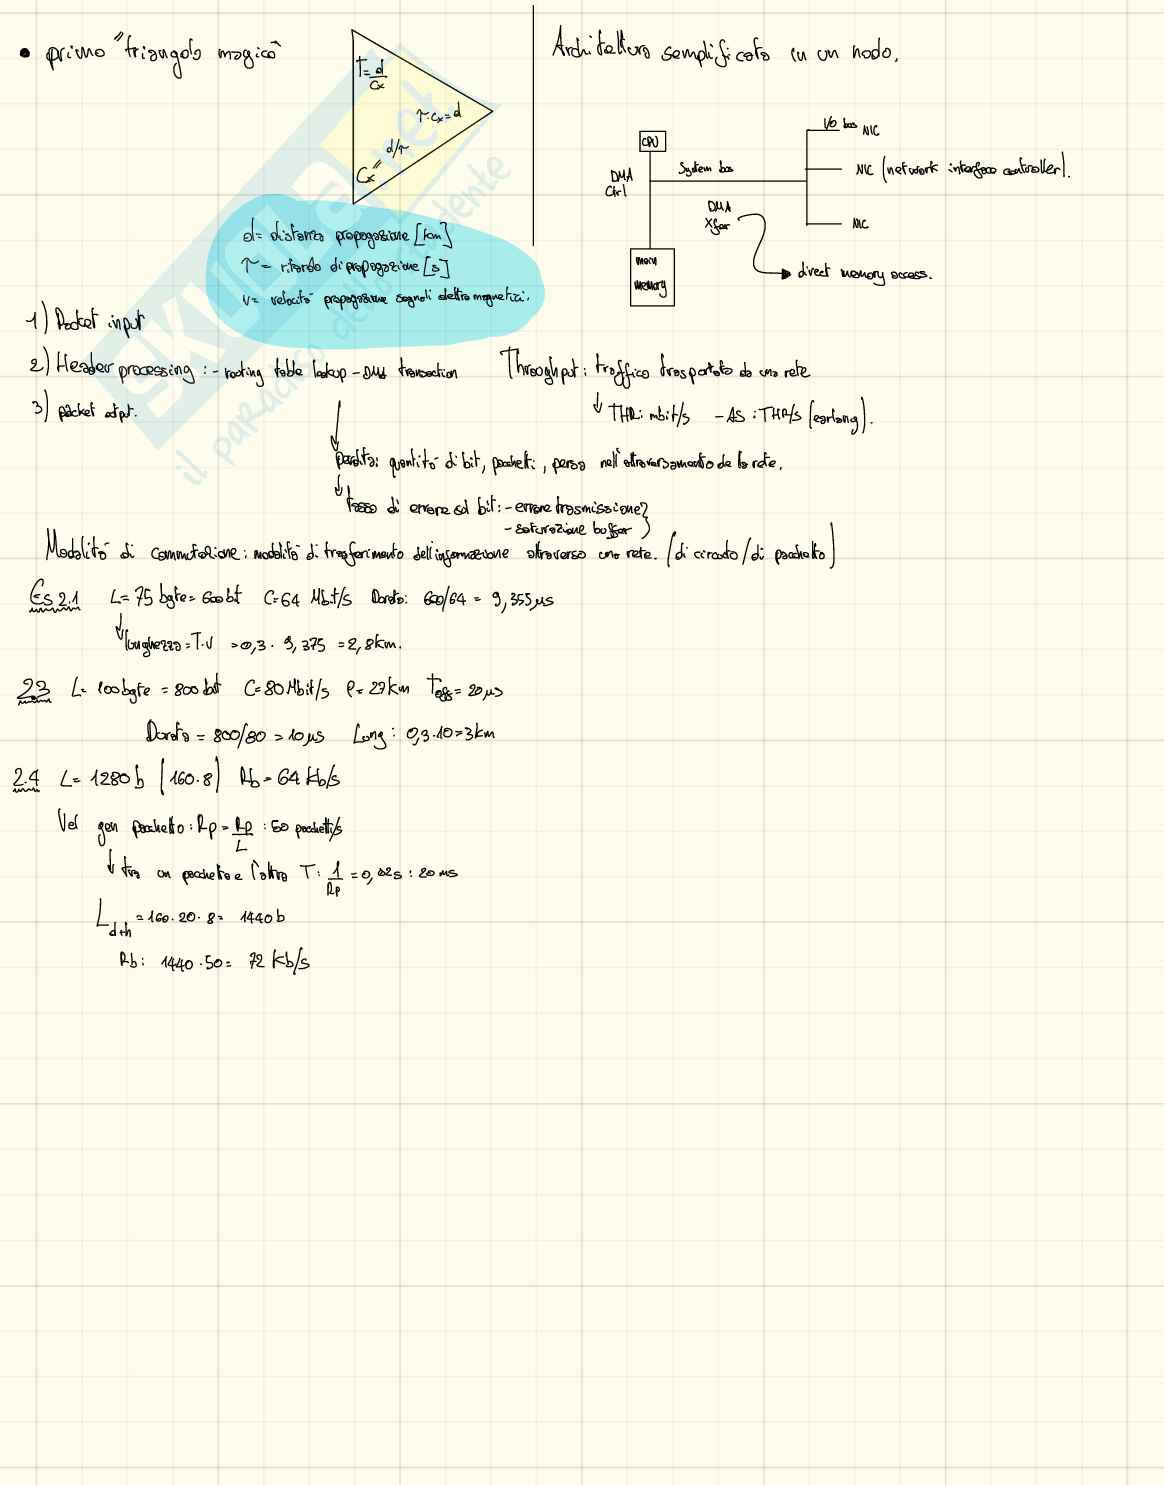 • primo "triangolo magico"
T = d/Cx
τ·Cx = d
d/τ
Cx =
d = distanza propagazione [km]
τ = ritardo di propagazione [s]
v = velocità propagazione segnali elettromagnetici.
Architettura semplificata in un nodo.
CPU
I/O bus NIC
DMA Ctrl
System bus
NIC (network interface controller).
DMA Xfer
NIC
main memory
direct memory access.
1) Packet input
2) Header processing : - routing table lookup - DMA transaction
3) packet output.
Throughput : traffico trasportato da una rete
↓ THR: mbit/s - AS : THR/s (earlang).
perdita: quantità di bit, pacchetti, persa nell'attraversamento de la rete.
↓ tasso di errore sul bit: - errore trasmissione }
- saturazione buffer }
Modalità di commutazione : modalità di trasferimento dell'informazione attraverso una rete. (di circuito / di pacchetto)
Es 2.1 L = 75 byte = 600 bit C = 64 Mbit/s Durata: 600/64 = 9,355 μs
↓ lunghezza = T·v = 0,3 · 9,375 = 2,8 km.
2.3 L = 100 byte = 800 bit C = 80 Mbit/s ρ = 27 km = 20 μs
Durata = 800/80 = 10 μs Lung : 0,3·10 = 3 km
2.4 L = 1280 b (160·8) Rb = 64 kb/s
Vel gen pacchetto : Rp = Rp/L : 50 pacchetti/s
↓ tra un pacchetto e l'altro T : 1/Rp = 0,02 s : 20 ms
L d+h = 160·20·8 = 1440 b
Rb : 1440·50 = 72 Kb/s
SKUOLA.net
il paradiso dello studente